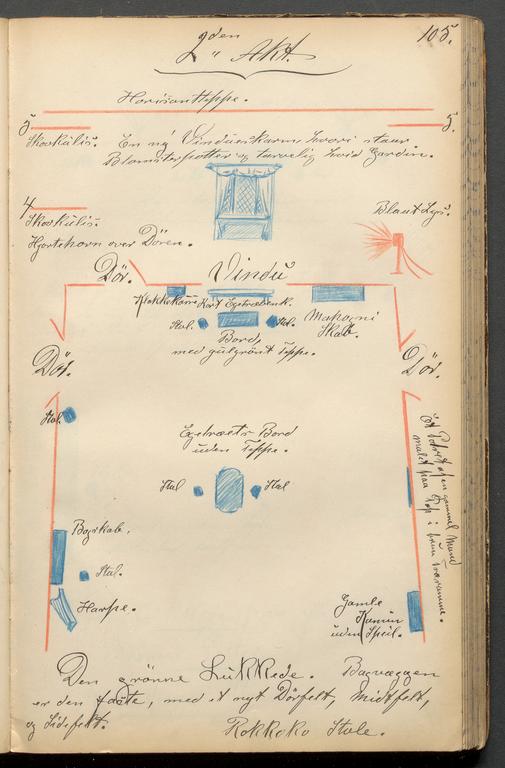 105.
2den Akt.
Horisonttæppe.
5 5.
Skovkulis. En ny Vindueskarm hvori staar
Blomsterpotter og tarvelig hvid Gardin.
4
Skovkulis.
Blaat Lys.
Hjortehorn over Dören.
Dör. Vindu
Klokke Kort Egetræsbænk.
Stol. Stol. Mahogni
Skab.
Bord,
med gulgrönt Tæppe.
Dör. Dör.
Stol.
Egetræets Bord
uden Tæppe.
Stol Stol
Et Portræt af en gammel Mand
malet paa i brun Træramme.
Bogskab.
Stol.
Harpe.
Gamle
Kamin
uden Speil.
Den grönne Lukkede. Bagvæggen
er den faste, med et nyt Dörfelt, Midtfelt,
og Sidefelt. Rokkoko Stole.